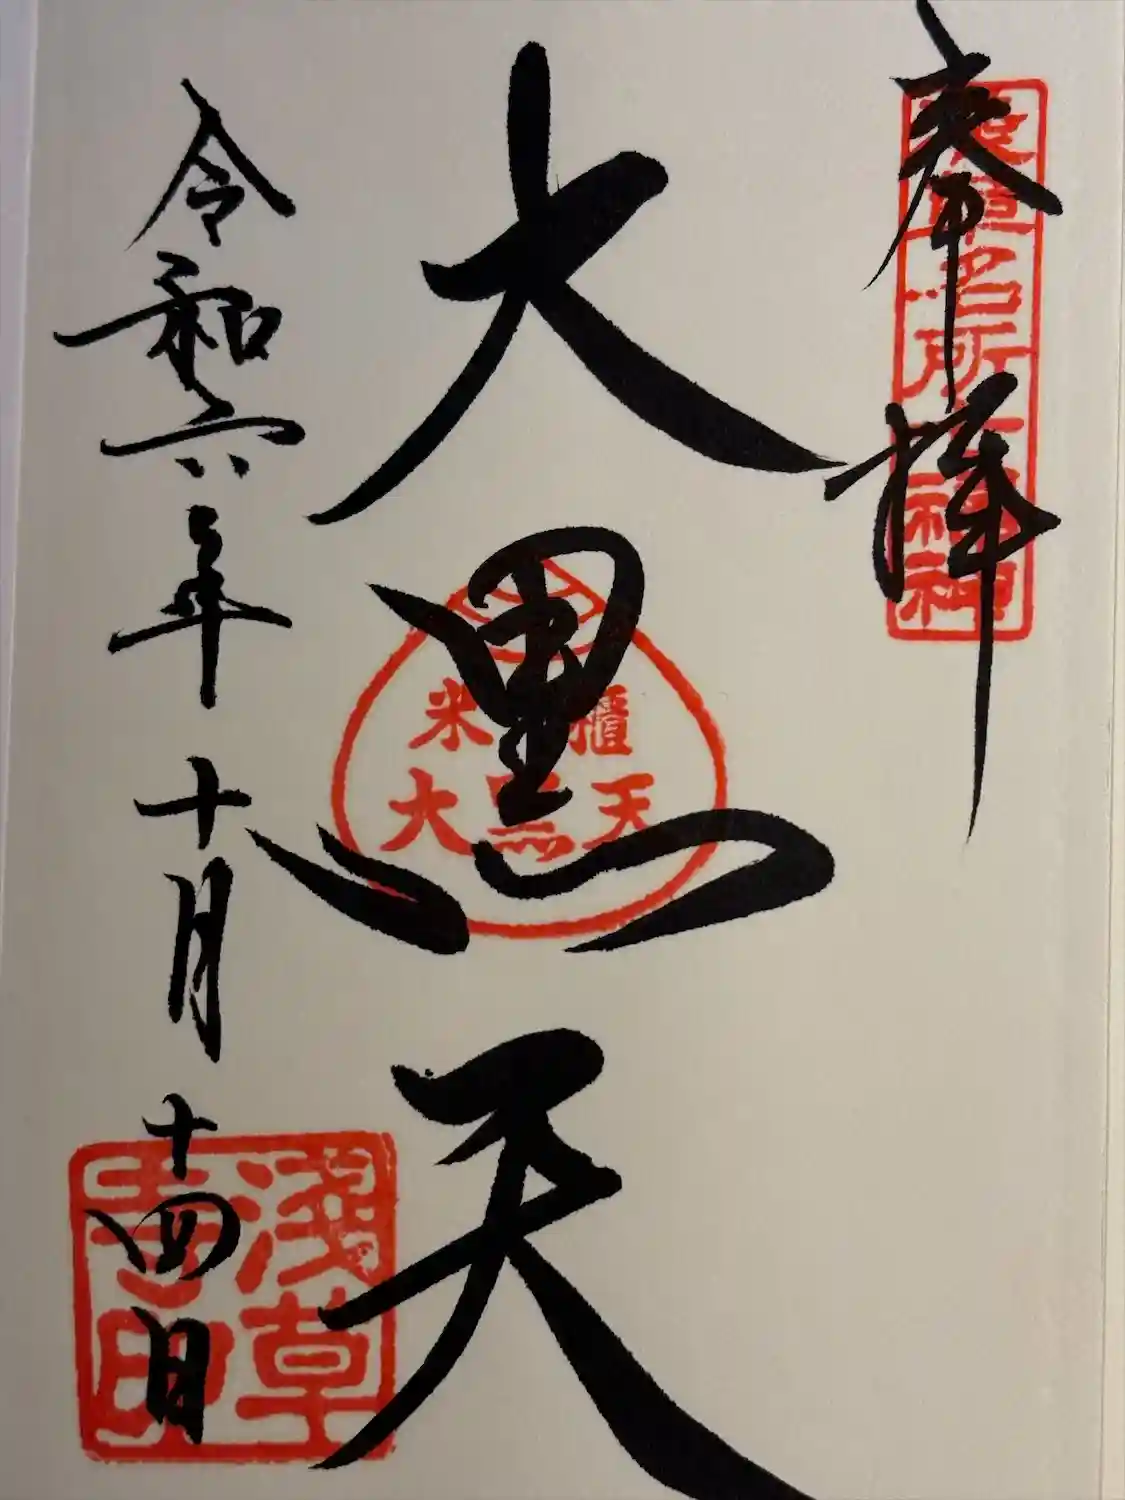 奉拝
浅草名所七福神
大黒天
米櫃
大黒天
令和六年十月十四日
淺草
寺印